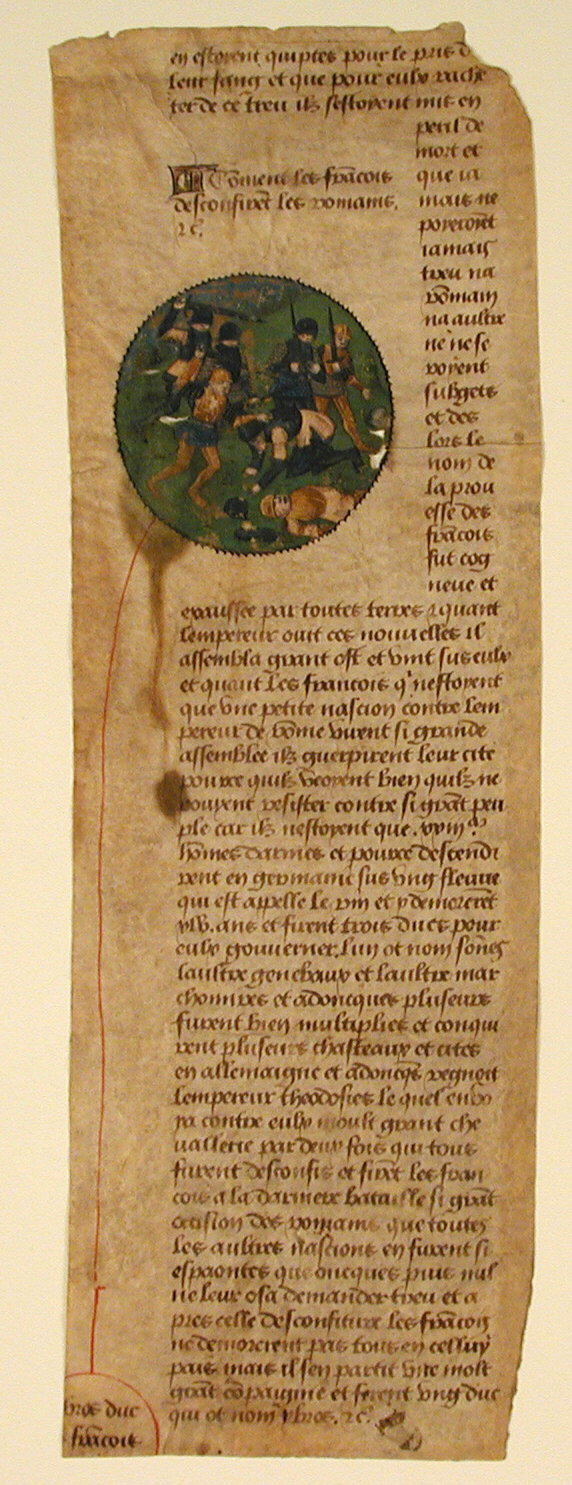 en estoyent quiptes pour le pris d
leur sang et que pour eulx rache
ter de ce treu ilz sestoyent mis en
peril de
mort et
que ia
mais ne
poyeroiēt
iamais
treu na
rōmain
na aultre
ne ne se
royent
subgets
et des
lors le
nom de
la prou
esse des
frācois
fut cog
neue et
Cōment les frācois
desconfirēt les romains.
⁊c̄.
exaussee par toutes terres ⁊ quant
lempereur ouit ces nouuelles il
assembla grant ost et vint sus eulx
et quant les francois q' nestoyent
que vne petite nascion contre lem
pereur de rōme virent si grande
assemblee ilz guerpirent leur cite
pource quilz veoyent bien quilz ne
pouyent resister contre si grāt peu
ple car ilz nestoyent que .xxiij.
hōmes darmes et pource descendi
rent en germanie sus vng fleuue
qui est appelle le rin et y demorerēt
xlv. ans et firent trois ducs pour
eulx gouuerner. lun ot nom
laultre genebaux et laultre mar
chomires et adoncques pluseurs
furent bien multiplies et conqui
rent pluseurs chasteaux et cites
en allemaigne et adoncq̄s regnoit
lempereur theodosies le quel enuo
ya contre eulx moult grant che
uallerie par deux fois qui tous
furent desconfis et firēt les fran
cois a la darniere bataille si grāt
occision des romains que toutes
les aultres nascions en furent si
espaontes que oncques puis nul
ne leur osa demander treu et a
pres celle desconfiture les frācois
ne demorerent pas tous en celluy
pais mais il sen partit vne molt
grāt cōpaignie et ferent vng duc
qui ot nom ybros. ⁊c̄.
bros duc
frācois